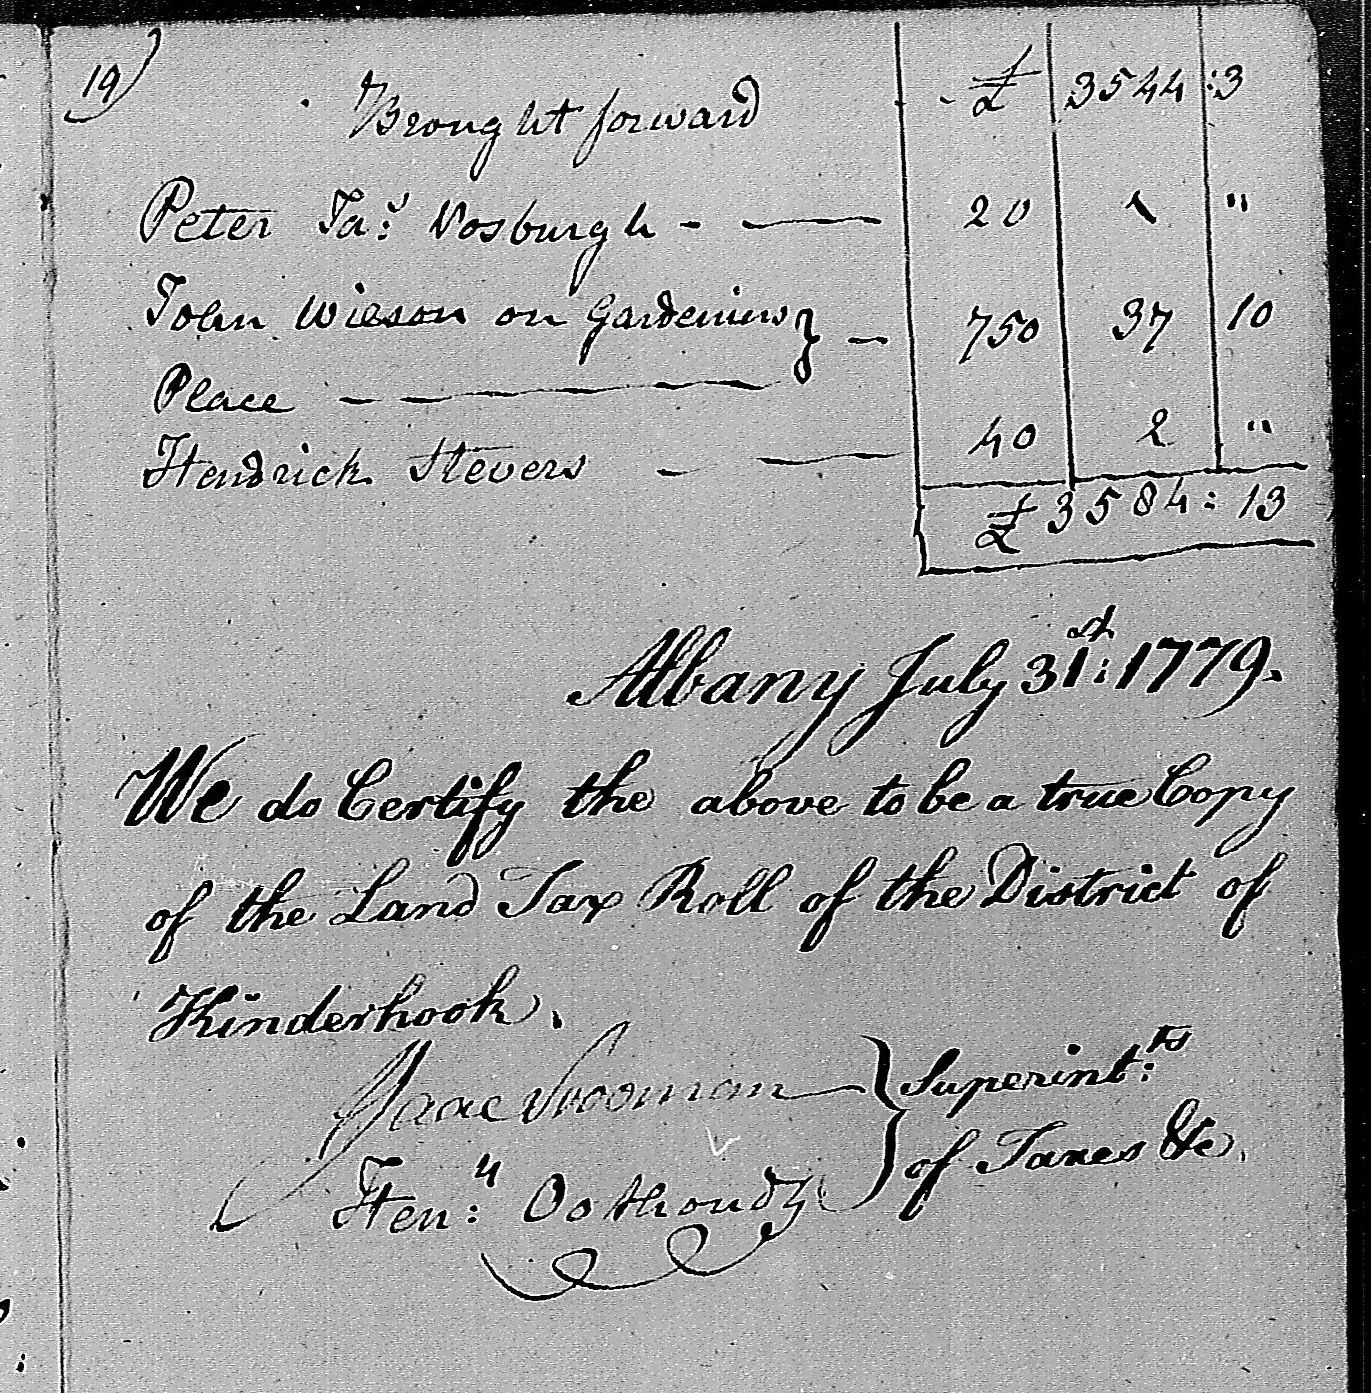 19)
Brought forward £ 3544 : 3
Peter Ja.s Vosburgh - — 20 1 "
John Wieson on Gardeniers } — 750 37 10
Place — — —
Hendrick Stevers — — 40 2 "
£ 3584 : 13
Albany July 31st: 1779.
We do Certify the above to be a true Copy
of the Land Tax Roll of the District of
Kinderhook.
Isaac Vrooman } Superint:ts
Hen:y Oothoudt } of Taxes &c.